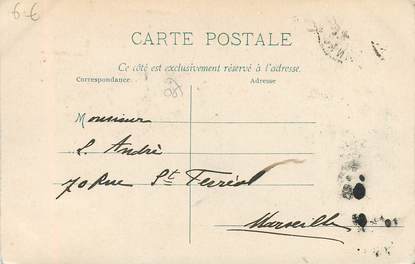 6-€
CARTE POSTALE
Ce côté est exclusivement réservé à l'adresse.
Correspondance
Adresse
Monsieur
S. André
70 Rue St Ferréol
Marseille